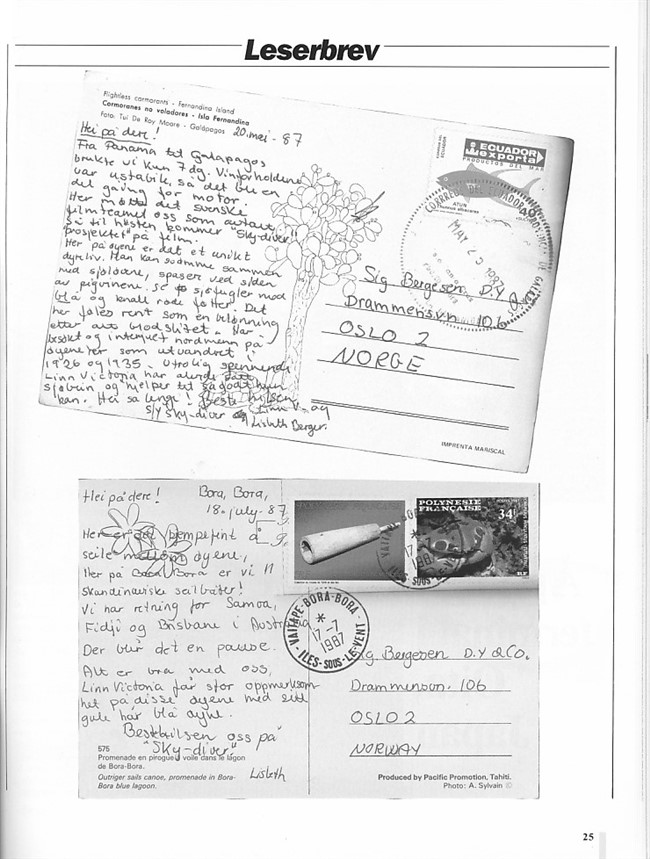 Leserbrev
Flightless cormorants - Fernandina Island
Cormoranes no voladores - Isla Fernandina
Foto: Tui De Roy Moore - Galápagos
20. mai - 87
Hei på dere!
Fra Panama til Galapagos
brukte vi kun 7 dg. Vindforholdene
var ustabile, så det ble en
del gåing for motor.
Her møtte det svenske
filmteamet oss som avtalt
Så til høsten kommer "Sky-diver"
prosjektet" på film.
Her på øyene er det et unikt
dyreliv. Man kan svømme sammen
med sjøløvene, spaser ved siden
av pigvinene. Se sjøfugler med
blå og knall røde føtter. Det
her føles rent som en belønning
etter alt blodslitet. Har
besøkt og intervjuet nordmenn på
øyene her som utvandret i
1926 og 1935. Utrolig spennende
Linn Victoria har aldri
sjøbein og hjelper til så godt hun
kan. Hei så lenge! Beste hilsen
S/Y Sky-diver og Linn V. og
Lisbeth Berger.
CORREOS DEL ECUADOR
ECUADOR
exporta
PRODUCTOS DEL MAR
ATUN
MAY 25 1987
Sig Bergesen D.Y & Co.
Drammensvn 106
OSLO 2
NORGE
IMPRENTA MARISCAL
Hei på dere!
Bora, Bora,
18. july - 87
Her er det kjempefint å
seile mellom øyene,
Her på Bora Bora er vi 11
Skandinaviske seilbåter!
Vi har retning for Samoa,
Fidji og Brisbane i Australia
Der blir det en pause.
Alt er bra med oss,
Linn Victoria får stor oppmerksom
het på disse øyene med sitt
gule hår blå øyne.
Beste hilsen oss på
"Sky-diver."
Lisbeth
575
Promenade en pirogue à voile dans le lagon
de Bora-Bora.
Outriger sails canoe, promenade in Bora-
Bora blue lagoon.
POLYNESIE
FRANÇAISE
34F
RF
VAITAPE-BORA-BORA
17-7
1987
ILES-SOUS-LE-VENT
Sig Bergesen D.Y & Co.
Drammensvn. 106
OSLO 2
NORWAY
Produced by Pacific Promotion, Tahiti.
Photo: A. Sylvain ©
25